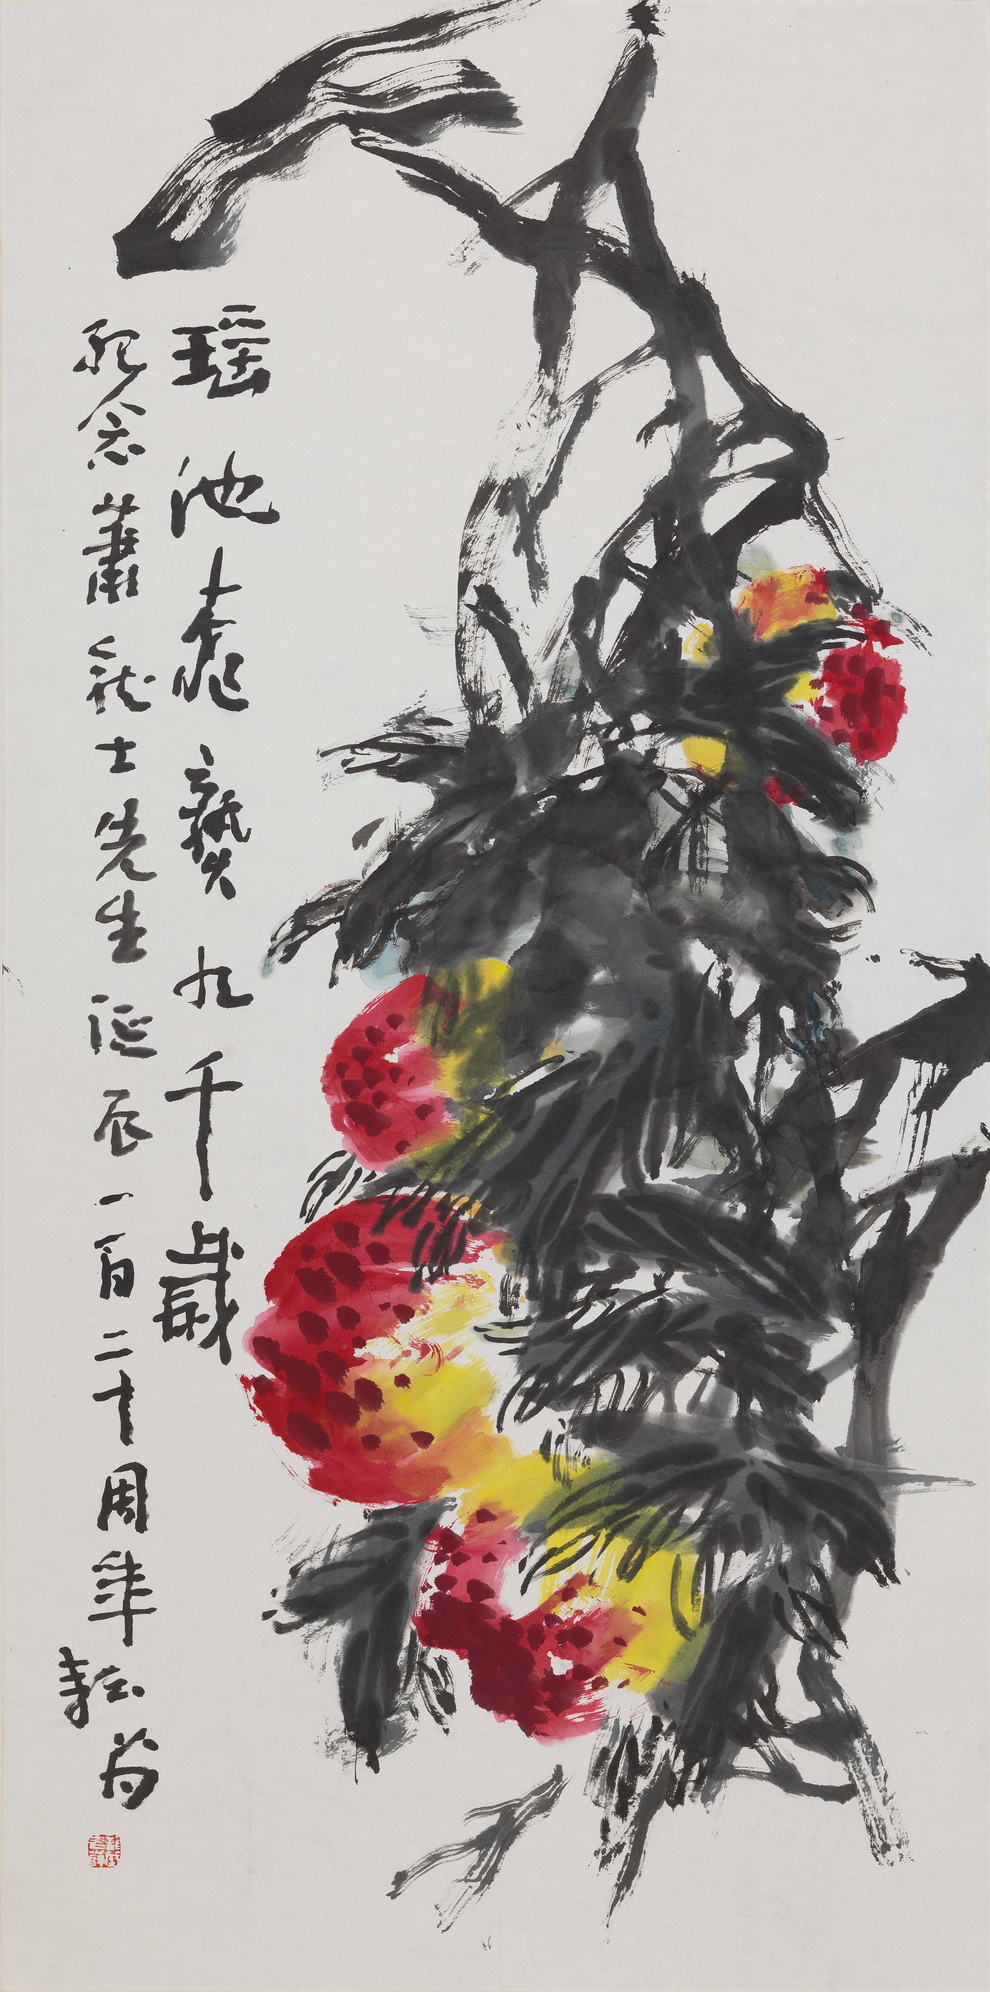 瑶池桃熟九千歲
紀念蕭龍士先生誕辰一百二十周年